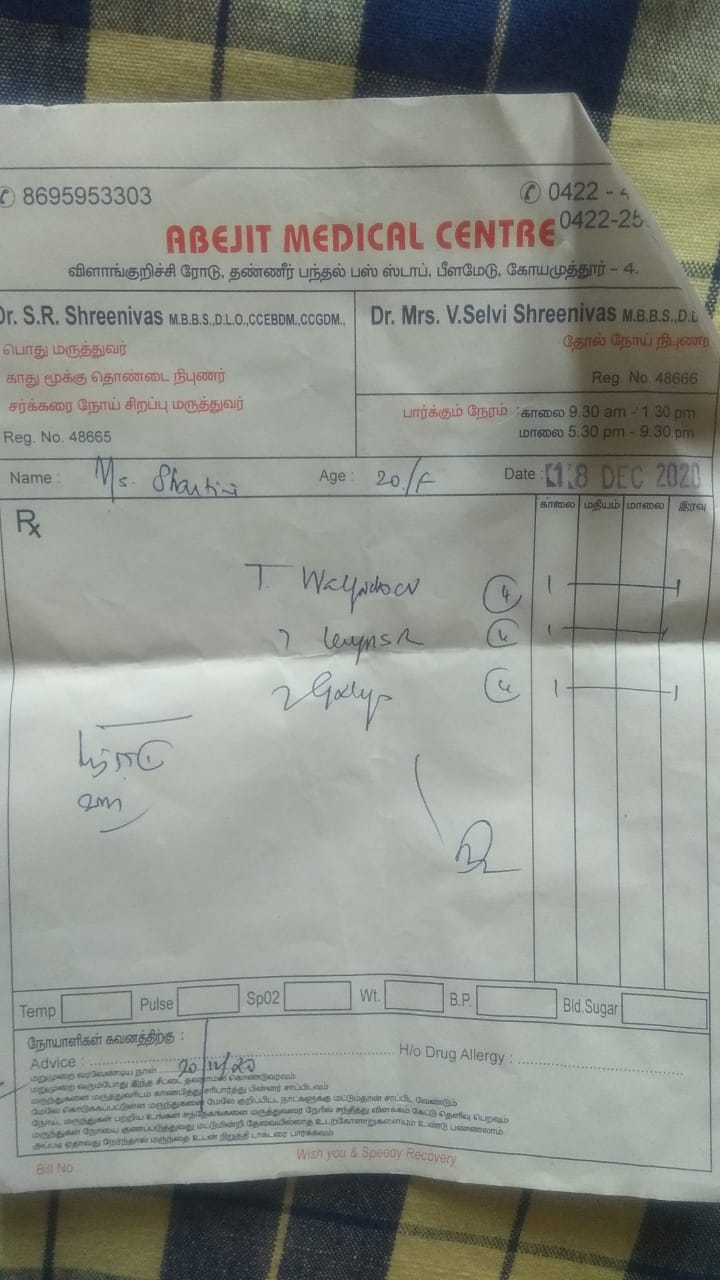 ✆ 8695953303
✆ 0422 - 4
0422-25
ABEJIT MEDICAL CENTRE
விளாங்குறிச்சி ரோடு, தண்ணீர் பந்தல் பஸ் ஸ்டாப், பீளமேடு, கோயமுத்தூர் - 4.
Dr. S.R. Shreenivas M.B.B.S.,D.L.O.,CCEBDM.,CCGDM.,
பொது மருத்துவர்
காது மூக்கு தொண்டை நிபுணர்
சர்க்கரை நோய் சிறப்பு மருத்துவர்
Reg. No. 48665
Dr. Mrs. V.Selvi Shreenivas M.B.B.S.,D.D
தோல் நோய் நிபுணர
Reg. No. 48666
பார்க்கும் நேரம் : காலை 9.30 am - 1.30 pm
மாலை 5.30 pm - 9.30 pm
Name : Ms. Age : 20/F Date : 18 DEC 2020
Rx
காலை மதியம் மாலை இரவு
T. 4 1 1
4 1
1 1
Temp Pulse Sp02 Wt. B.P. Bld.Sugar
நோயாளிகள் கவனத்திற்கு :
Advice : H/o Drug Allergy :
மறுமுறை வரவேண்டிய நாள்
மறுமுறை வரும்போது இந்த சீட்டை தவறாமல் கொண்டுவரவும்
மருந்துகளை மருத்துவரிடம் காண்பித்து சரிபார்த்து பின்னர் சாப்பிடவும்
மேலே கொடுக்கப்பட்டுள்ள மருந்துகளை மேலே குறிப்பிட்ட நாட்களுக்கு மட்டும்தான் சாப்பிட வேண்டும்
நோய், மருந்துகள் பற்றிய உங்கள் சந்தேகங்களை மருத்துவரை நேரில் சந்தித்து விளக்கம் கேட்டு தெளிவு பெறவும்
மருந்துகள் நோயை குணப்படுத்துவது மட்டுமின்றி தேவையில்லாத உடற்கோளாறுகளையும் உண்டு பண்ணலாம்
அப்படி ஏதாவது நேர்ந்தால் மருந்தை உடன் நிறுத்தி டாக்டரை பார்க்கவும்
Wish you & Speedy Recovery
Bill No